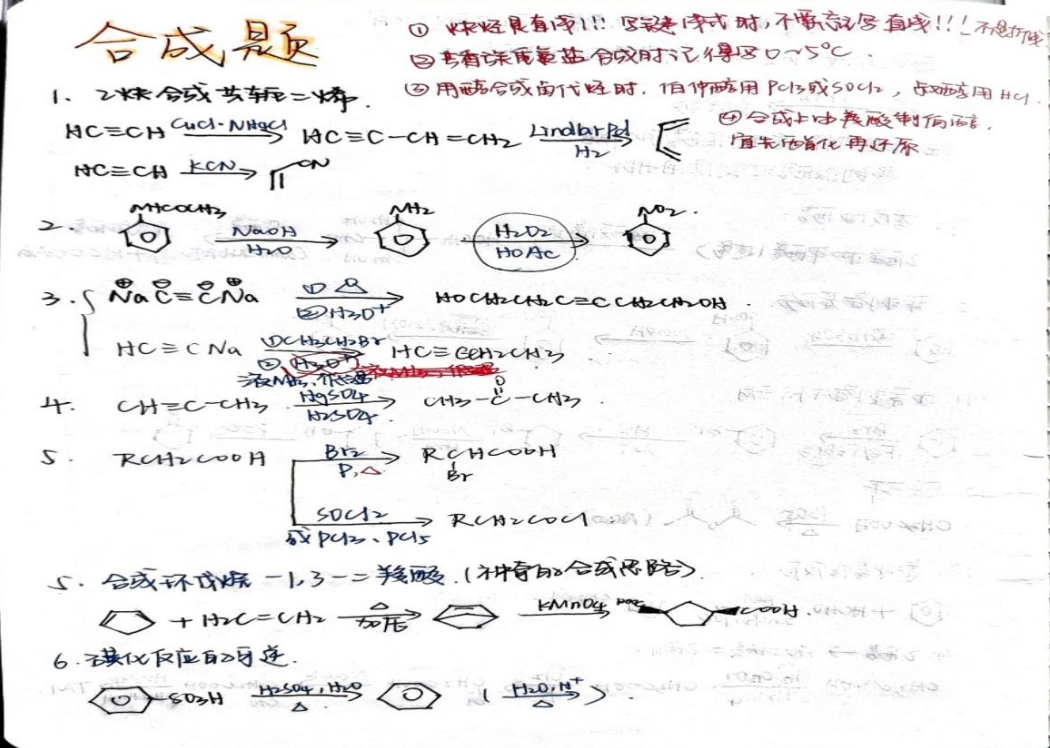 合成题
① 炔烃是直线!!! 写键线式时,不要忘记写直线!!! 不是折线
② 芳香族重氮盐合成时记得写0~5°C.
③ 用醇合成卤代烃时,伯仲醇用PCl3或SOCl2,叔醇用HCl.
④ 合成上由羧酸制伯醇,
宜先酯化再还原
1. 乙炔合成共轭二烯.
HC≡CH CuCl·NH4Cl HC≡C-CH=CH2 Lindlar Pd H2
HC≡CH KCN CN
2. NHCOCH3 NaOH H2O NH2 H2O2 HOAc NO2.
3. NaC≡CNa ① ②H3O+ HOCH2CH2C≡CCH2CH2OH.
HC≡CNa ①CH3CH2Br ② H3O+ HC≡CCH2CH3
液NH3、低温 液NH3、低温
4. CH≡C-CH3 HgSO4 H2SO4. CH3-C-CH3. O
5. RCH2COOH Br2 P,△ RCHCOOH Br
SOCl2 或PCl3、PCl5 RCH2COCl
5. 合成环戊烷-1,3-二羧酸.(神奇的合成思路)
+ H2C=CH2 △ 加压 KMnO4 HOOC COOH.
6. 磺化反应的可逆.
SO3H H2SO4,H2O △ ( H2O,H+ △ )